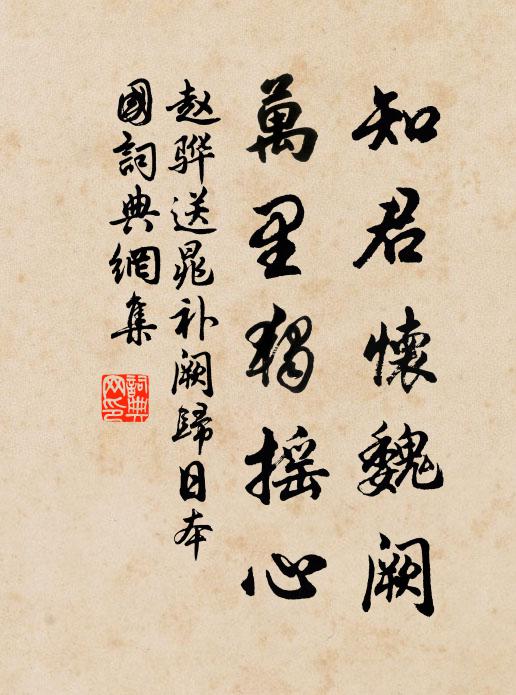 知君懷魏阙
萬里獨摇心
赵骅送晁补阙歸日本
國詞典網集
詞典
网印